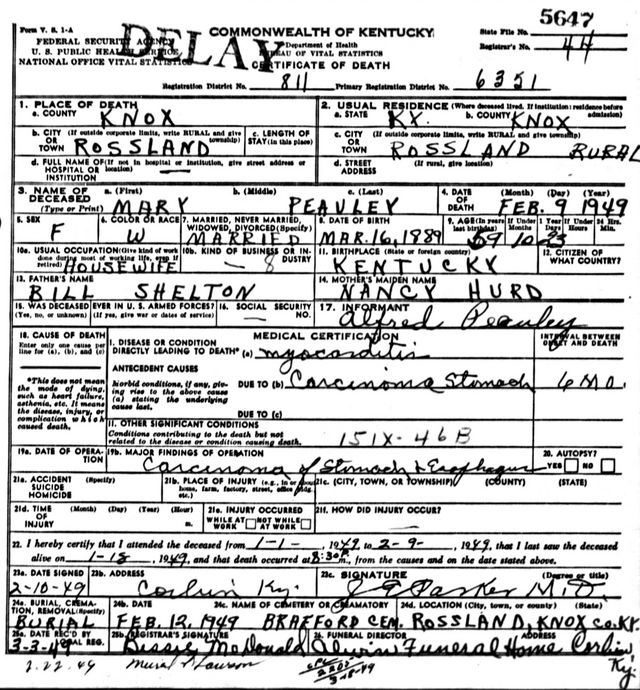 5647
Form V. S. 1-A
COMMONWEALTH OF KENTUCKY
State File No.
FEDERAL SECURITY AGENCY
Department of Health
Registrar's No. 44
U. S. PUBLIC HEALTH SERVICE
BUREAU OF VITAL STATISTICS
NATIONAL OFFICE VITAL STATISTICS
CERTIFICATE OF DEATH
DELAY
Registration District No. 811 Primary Registration District No. 6351
1. PLACE OF DEATH
a. COUNTY KNOX
2. USUAL RESIDENCE (Where deceased lived. If institution: residence before admission)
a. STATE KY. b. COUNTY KNOX
b. CITY (If outside corporate limits, write RURAL and give township)
OR TOWN ROSSLAND
c. LENGTH OF STAY (in this place)
c. CITY (If outside corporate limits, write RURAL and give township)
OR TOWN ROSSLAND RURAL
d. FULL NAME OF (If not in hospital or institution, give street address or location)
HOSPITAL OR INSTITUTION —
d. STREET ADDRESS (If rural, give location)
3. NAME OF DECEASED (Type or Print)
a. (First) b. (Middle) c. (Last)
MARY PEAULEY
4. DATE OF DEATH (Month) (Day) (Year)
FEB. 9 1949
5. SEX F
6. COLOR OR RACE W
7. MARRIED, NEVER MARRIED, WIDOWED, DIVORCED (Specify)
MARRIED
8. DATE OF BIRTH
MAR. 16, 1889
9. AGE (In years last birthday) If Under 1 Year If Under 24 Hrs.
59 10 23
10a. USUAL OCCUPATION (Give kind of work done during most of working life, even if retired)
HOUSEWIFE
10b. KIND OF BUSINESS OR INDUSTRY
— 8
11. BIRTHPLACE (State or foreign country)
KENTUCKY
12. CITIZEN OF WHAT COUNTRY?
13. FATHER'S NAME
BILL SHELTON
14. MOTHER'S MAIDEN NAME
NANCY HURD
15. WAS DECEASED EVER IN U. S. ARMED FORCES?
(Yes, no, or unknown) (If yes, give war or dates of service)
16. SOCIAL SECURITY NO.
—
17. INFORMANT
Alfred Peauley
18. CAUSE OF DEATH
Enter only one cause per line for (a), (b), and (c)
MEDICAL CERTIFICATION
INTERVAL BETWEEN ONSET AND DEATH
I. DISEASE OR CONDITION
DIRECTLY LEADING TO DEATH* (a) myocarditis
*This does not mean the mode of dying, such as heart failure, asthenia, etc. It means the disease, injury, or complication which caused death.
ANTECEDENT CAUSES
Morbid conditions, if any, giving rise to the above cause (a) stating the underlying cause last.
DUE TO (b) Carcinoma Stomach 6 Mo.
DUE TO (c)
II. OTHER SIGNIFICANT CONDITIONS
Conditions contributing to the death but not related to the disease or condition causing death.
151X-46B
19a. DATE OF OPERATION
19b. MAJOR FINDINGS OF OPERATION
Carcinoma of Stomach & Esophagus
20. AUTOPSY?
YES NO
21a. ACCIDENT SUICIDE HOMICIDE (Specify)
21b. PLACE OF INJURY (e.g., in or about home, farm, factory, street, office bldg. etc.)
21c. (CITY, TOWN, OR TOWNSHIP) (COUNTY) (STATE)
21d. TIME OF INJURY (Month) (Day) (Year) (Hour) m.
21e. INJURY OCCURRED
WHILE AT WORK NOT WHILE AT WORK
21f. HOW DID INJURY OCCUR?
—
22. I hereby certify that I attended the deceased from 1-1-, 1949, to 2-9-, 1949, that I last saw the deceased
alive on 1-18, 1949, and that death occurred at 8:30 P.m., from the causes and on the date stated above.
23a. DATE SIGNED
2-10-49
23b. ADDRESS
Corbin Ky.
23c. SIGNATURE (Degree or title)
Parker M.D.
24a. BURIAL, CREMATION, REMOVAL (Specify)
BURIAL
24b. DATE
FEB. 12, 1949
24c. NAME OF CEMETERY OR CREMATORY
BRAFFORD CEM.
24d. LOCATION (City, town, or county) (State)
ROSSLAND, KNOX CO. KY.
25a. DATE REC'D BY LOCAL REG.
3-3-49
25b. REGISTRAR'S SIGNATURE
Bessie McDonald
26. FUNERAL DIRECTOR ADDRESS
Funeral Home Corbin Ky.
2-22-49
3-18-49